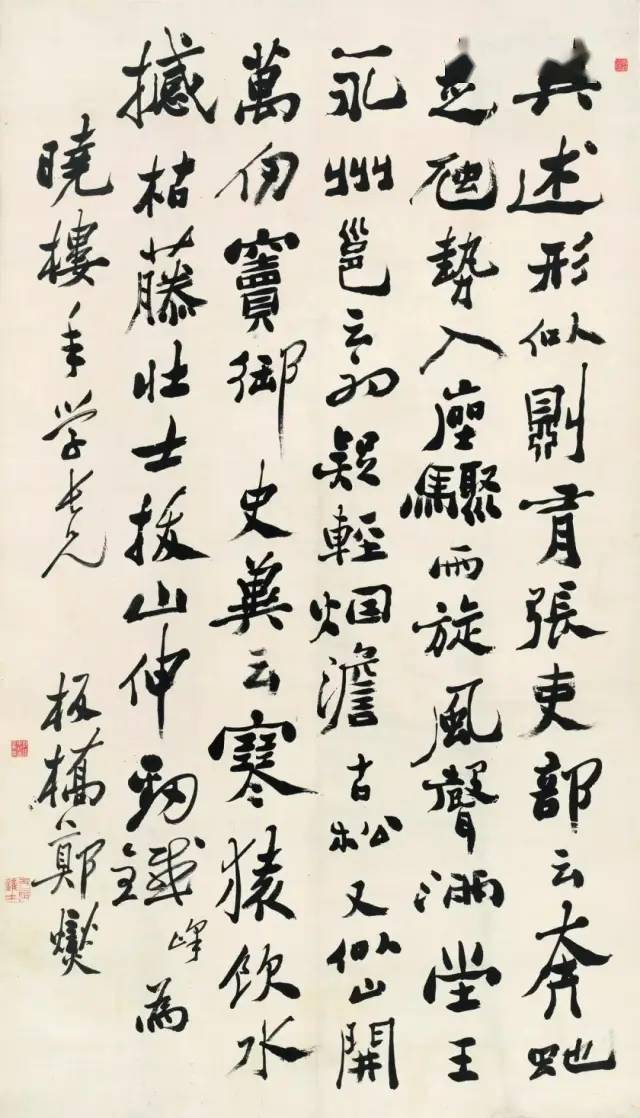 其述形似則有張吏部云奔虵
走虺勢入座驟雨旋風聲滿堂王
永州邕云初疑輕烟澹古松又似山開
萬仞竇御史冀云寒猿飲水
撼枯藤壯士拔山伸勁鐵 峰 為
曉樓年學長兄 板橋鄭燮